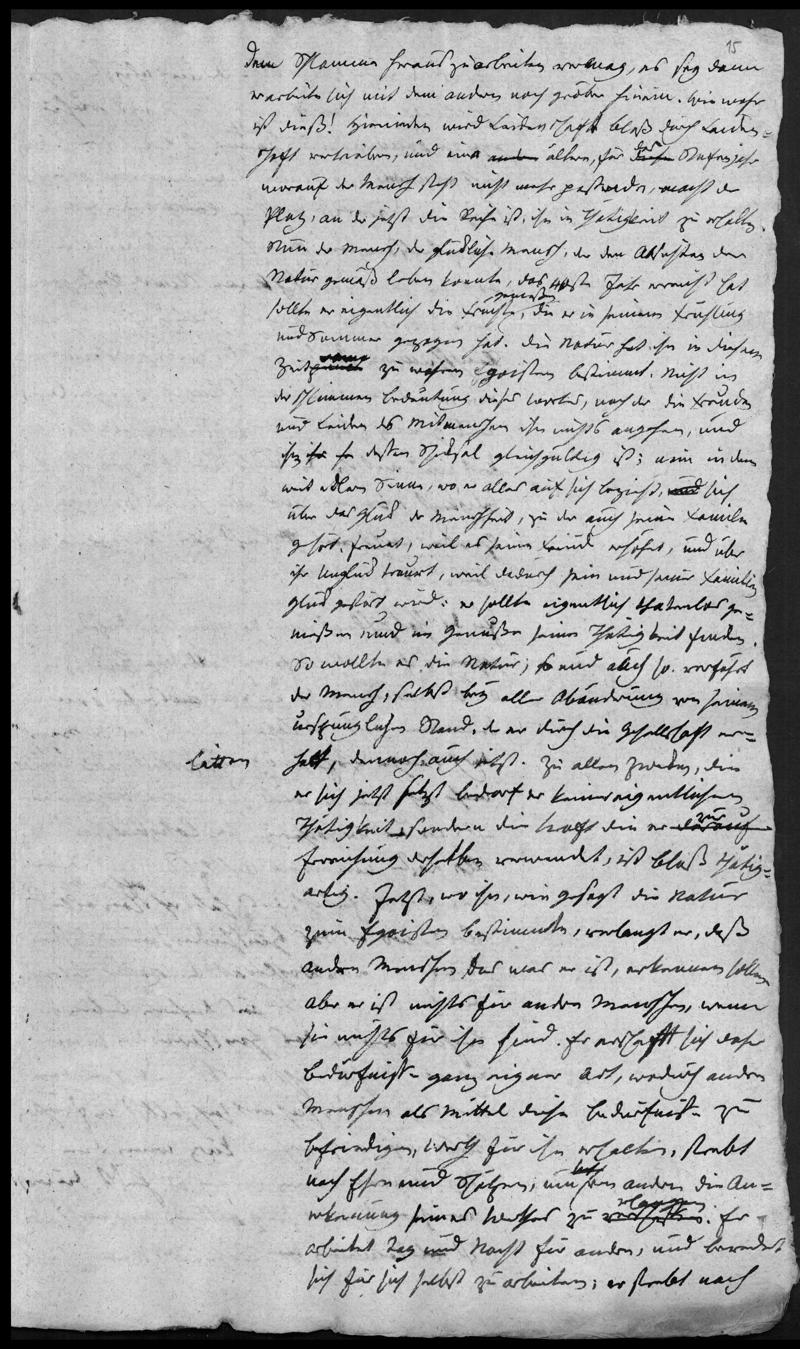 15
dem Schlamme herauszuarbeiten vermag, es sey denn
er arbeite sich mit dem andern noch gröber hinein. Wie wahr
ist dieß! Hienieden wird Leidenschaft bloß durch Leiden=
schaft vertrieben, und eine andere ältere, für das diese Stufenjahr
worauf der Mensch steht nicht mehr passende, macht der
Platz, an der jetzt die Reihe ist, ihn in Thätigkeit zu erhalten.
Wenn der Mensch, der glückliche Mensch, der den Absichten der
Natur gemäß leben konnte, das 40ste Jahr erreicht hat
sollte er eigentlich die Früchte genießen, die er in seinem Frühling
und Sommer gezogen hat. Die Natur hat ihn in diesem
Zeit zu wahren Egoisten bestimmt. Nicht in
der schlimmen Bedeutung dieses Wortes, nach der die Freuden
und Leiden des Mitmenschen ihn nichts angehen, und
ihm dessen Schicksal gleichgültig ist; nein in dem
weit edlern Sinne, wo er alles auf sich bezieht, und sich
über das Glück der Menschheit, zu der auch seine Familie
gehört, freuet, weil es seine Freude erhöhet, und über
ihr Unglück trauert, weil dadurch sein und seiner Familie
Glück gestört wird: er sollte eigentlich thatenlos ge=
nießen und im Genusse seine Thätigkeit finden.
So wollte es die Natur; und auch so verfährt
der Mensch, selbst bey aller Abänderung von seinem
ursprünglichen Stand, die er durch die Gesellschaft er=
litten
hält, dennoch auch jetzt. Zu allen Zwecken, die
er sich jetzt setzt bedarf er keiner eigentlichen
Thätigkeit, sondern die Kraft die er darauf zur
Erreichung derselben verwendet, ist bloß thätig=
artig. Jetzt, wo ihn, wie gesagt die Natur
zum Egoisten bestimmte, verlangt er, daß
andre Menschen das was er ist, erkennen sollen
aber er ist nichts für andre Menschen, wenn
sie nichts für ihn sind. Er erschafft sich daher
Bedürfnisse ganz eigner Art, wodurch andre
Menschen als Mittel diese Bedürfnisse zu
befriedigen, Werth für ihn erhalten, strebt
nach Ehren und Schätzen, um bey andern die An=
erkennung seines Werthes zu erlangen. Er
arbeitet Tag und Nacht für andre, und beredet
sich für sich selbst zu arbeiten; er strebt nach